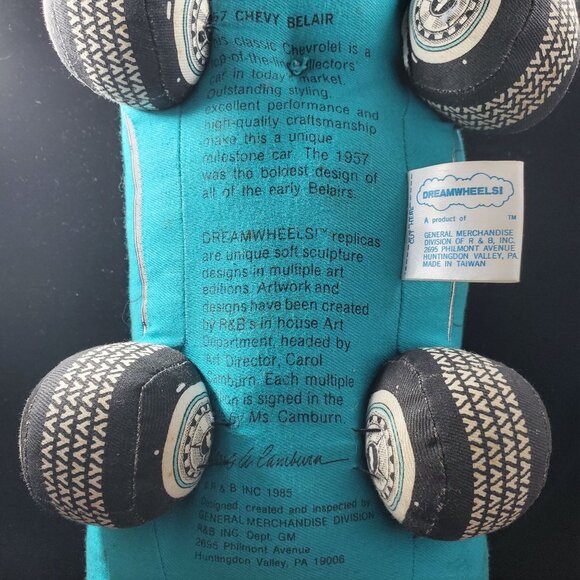 57 CHEVY BELAIR
This classic Chevrolet is a
top-of-the-line collectors'
car in today's market.
Outstanding styling,
excellent performance and
high-quality craftsmanship
make this a unique
milestone car. The 1957
was the boldest design of
all of the early Belairs.
DREAMWHEELS!™ replicas
are unique soft sculpture
designs in multiple art
editions. Artwork and
designs have been created
by R&B's in house Art
Department, headed by
Art Director, Carol
Camburn. Each multiple
is signed in the
by Ms. Camburn.
Camburn
R & B INC 1985
Designed created and inspected by
GENERAL MERCHANDISE DIVISION
R&B INC. Dept. GM
2695 Philmont Avenue
Huntingdon Valley, PA 19006
DREAMWHEELS!
A product of ™
GENERAL MERCHANDISE
DIVISION OF R & B, INC.
2695 PHILMONT AVENUE
HUNTINGDON VALLEY, PA.
MADE IN TAIWAN
CUT HERE